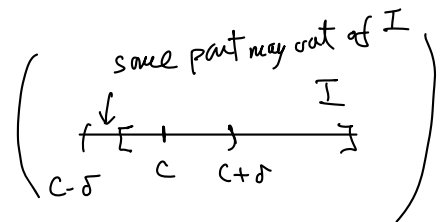 some part may out of I
I
( [ c ) ]
c-δ c c+δ